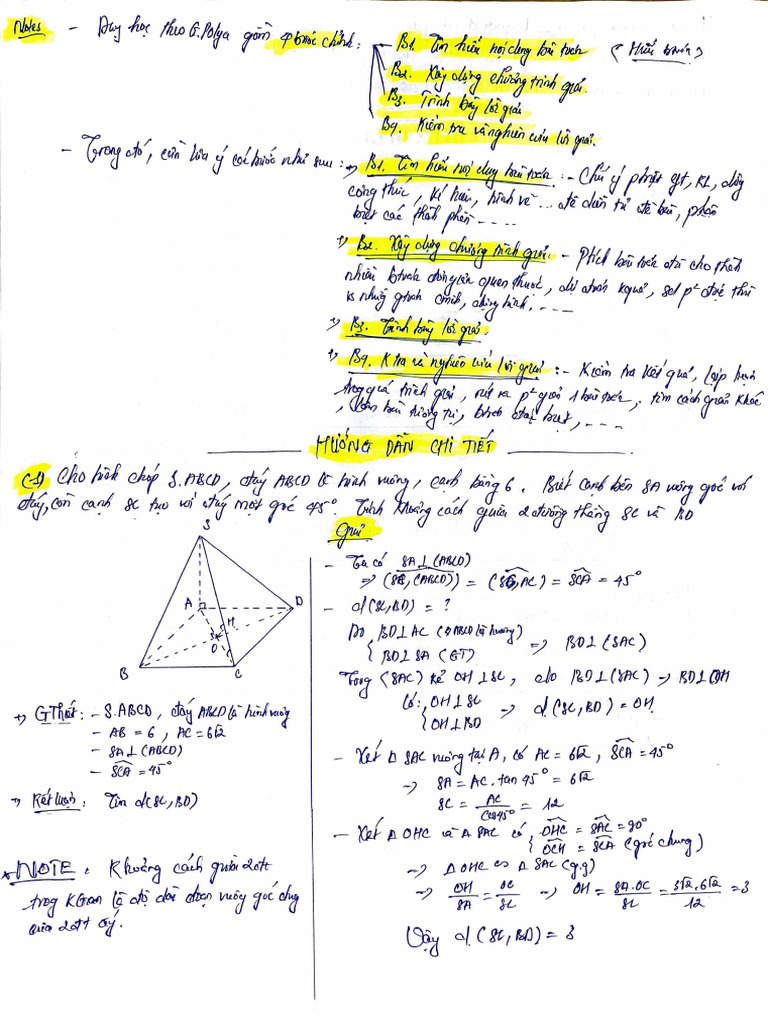 Notes - Dạy học theo G.Polya gồm 4 bước chính: - B1. Tìm hiểu nội dung bài toán
B2. Xây dựng chương trình giải.
B3. Trình bày lời giải
B4. Kiểm tra và nghiên cứu lời giải.
- Trong đó, cần lưu ý các bước như sau: +, B1. Tìm hiểu nội dung bài toán: - Chú ý phân gt, KL, dùng
công thức, kí hiệu, hình vẽ ... để diễn tả đề bài, phân
biệt các thành phần .....
+, B2. Xây dựng chương trình giải. - Ptích bài toán đã cho thành
nhiều btoán đơn giản quen thuộc, dự đoán kquả,
+, B3. Trình bày lời giải.
+, B4. K tra và nghiên cứu lời giải: - Kiểm tra kết quả,
trong quá trình giải, rút ra p² giải 1 bài toán, tìm cách giải khác,
HƯỚNG DẪN CHI TIẾT
C1) Cho hình chóp S.ABCD, đáy ABCD là hình vuông, cạnh bằng 6. Biết cạnh bên SA vuông góc với
đáy, còn cạnh SC tạo với đáy một góc 45°. Tính khoảng cách giữa 2 đường thẳng SC và BD
Giải
S
A
D
H
O
B
C
+, GThiết: - S.ABCD, đáy ABCD là hình vuông
- AB = 6, AC = 6√2
- SA⊥(ABCD)
- SCA = 45°
+, Kết luận: Tìm d(SC, BD)
* NOTE: Khoảng cách giữa 2đtt
trong KGian là độ dài đoạn vuông góc chung
của 2đtt ấy.
- Ta có SA⊥(ABCD)
=> (SC, (ABCD)) = (SC, AC) = SCA = 45°
- d(SC, BD) = ?
Do { BD⊥AC (ABCD là hvuông)
BD⊥SA (GT) => BD⊥(SAC)
Trong (SAC) kẻ OH⊥SC, do BD⊥(SAC) => BD⊥OH
Có: { OH⊥SC
OH⊥BD => d(SC, BD) = OH.
- Xét Δ SAC vuông tại A, có AC = 6√2, SCA = 45°
=> SA = AC. tan 45° = 6√2
SC = AC/cos45° = 12
- Xét Δ OHC và Δ SAC có { OHC = SAC = 90°
OCH = SCA (góc chung)
=> Δ OHC ∽ Δ SAC (g.g)
=> OH/SA = OC/SC => OH = SA.OC/SC = 3√2.6√2/12 = 3
Vậy d(SC, BD) = 3